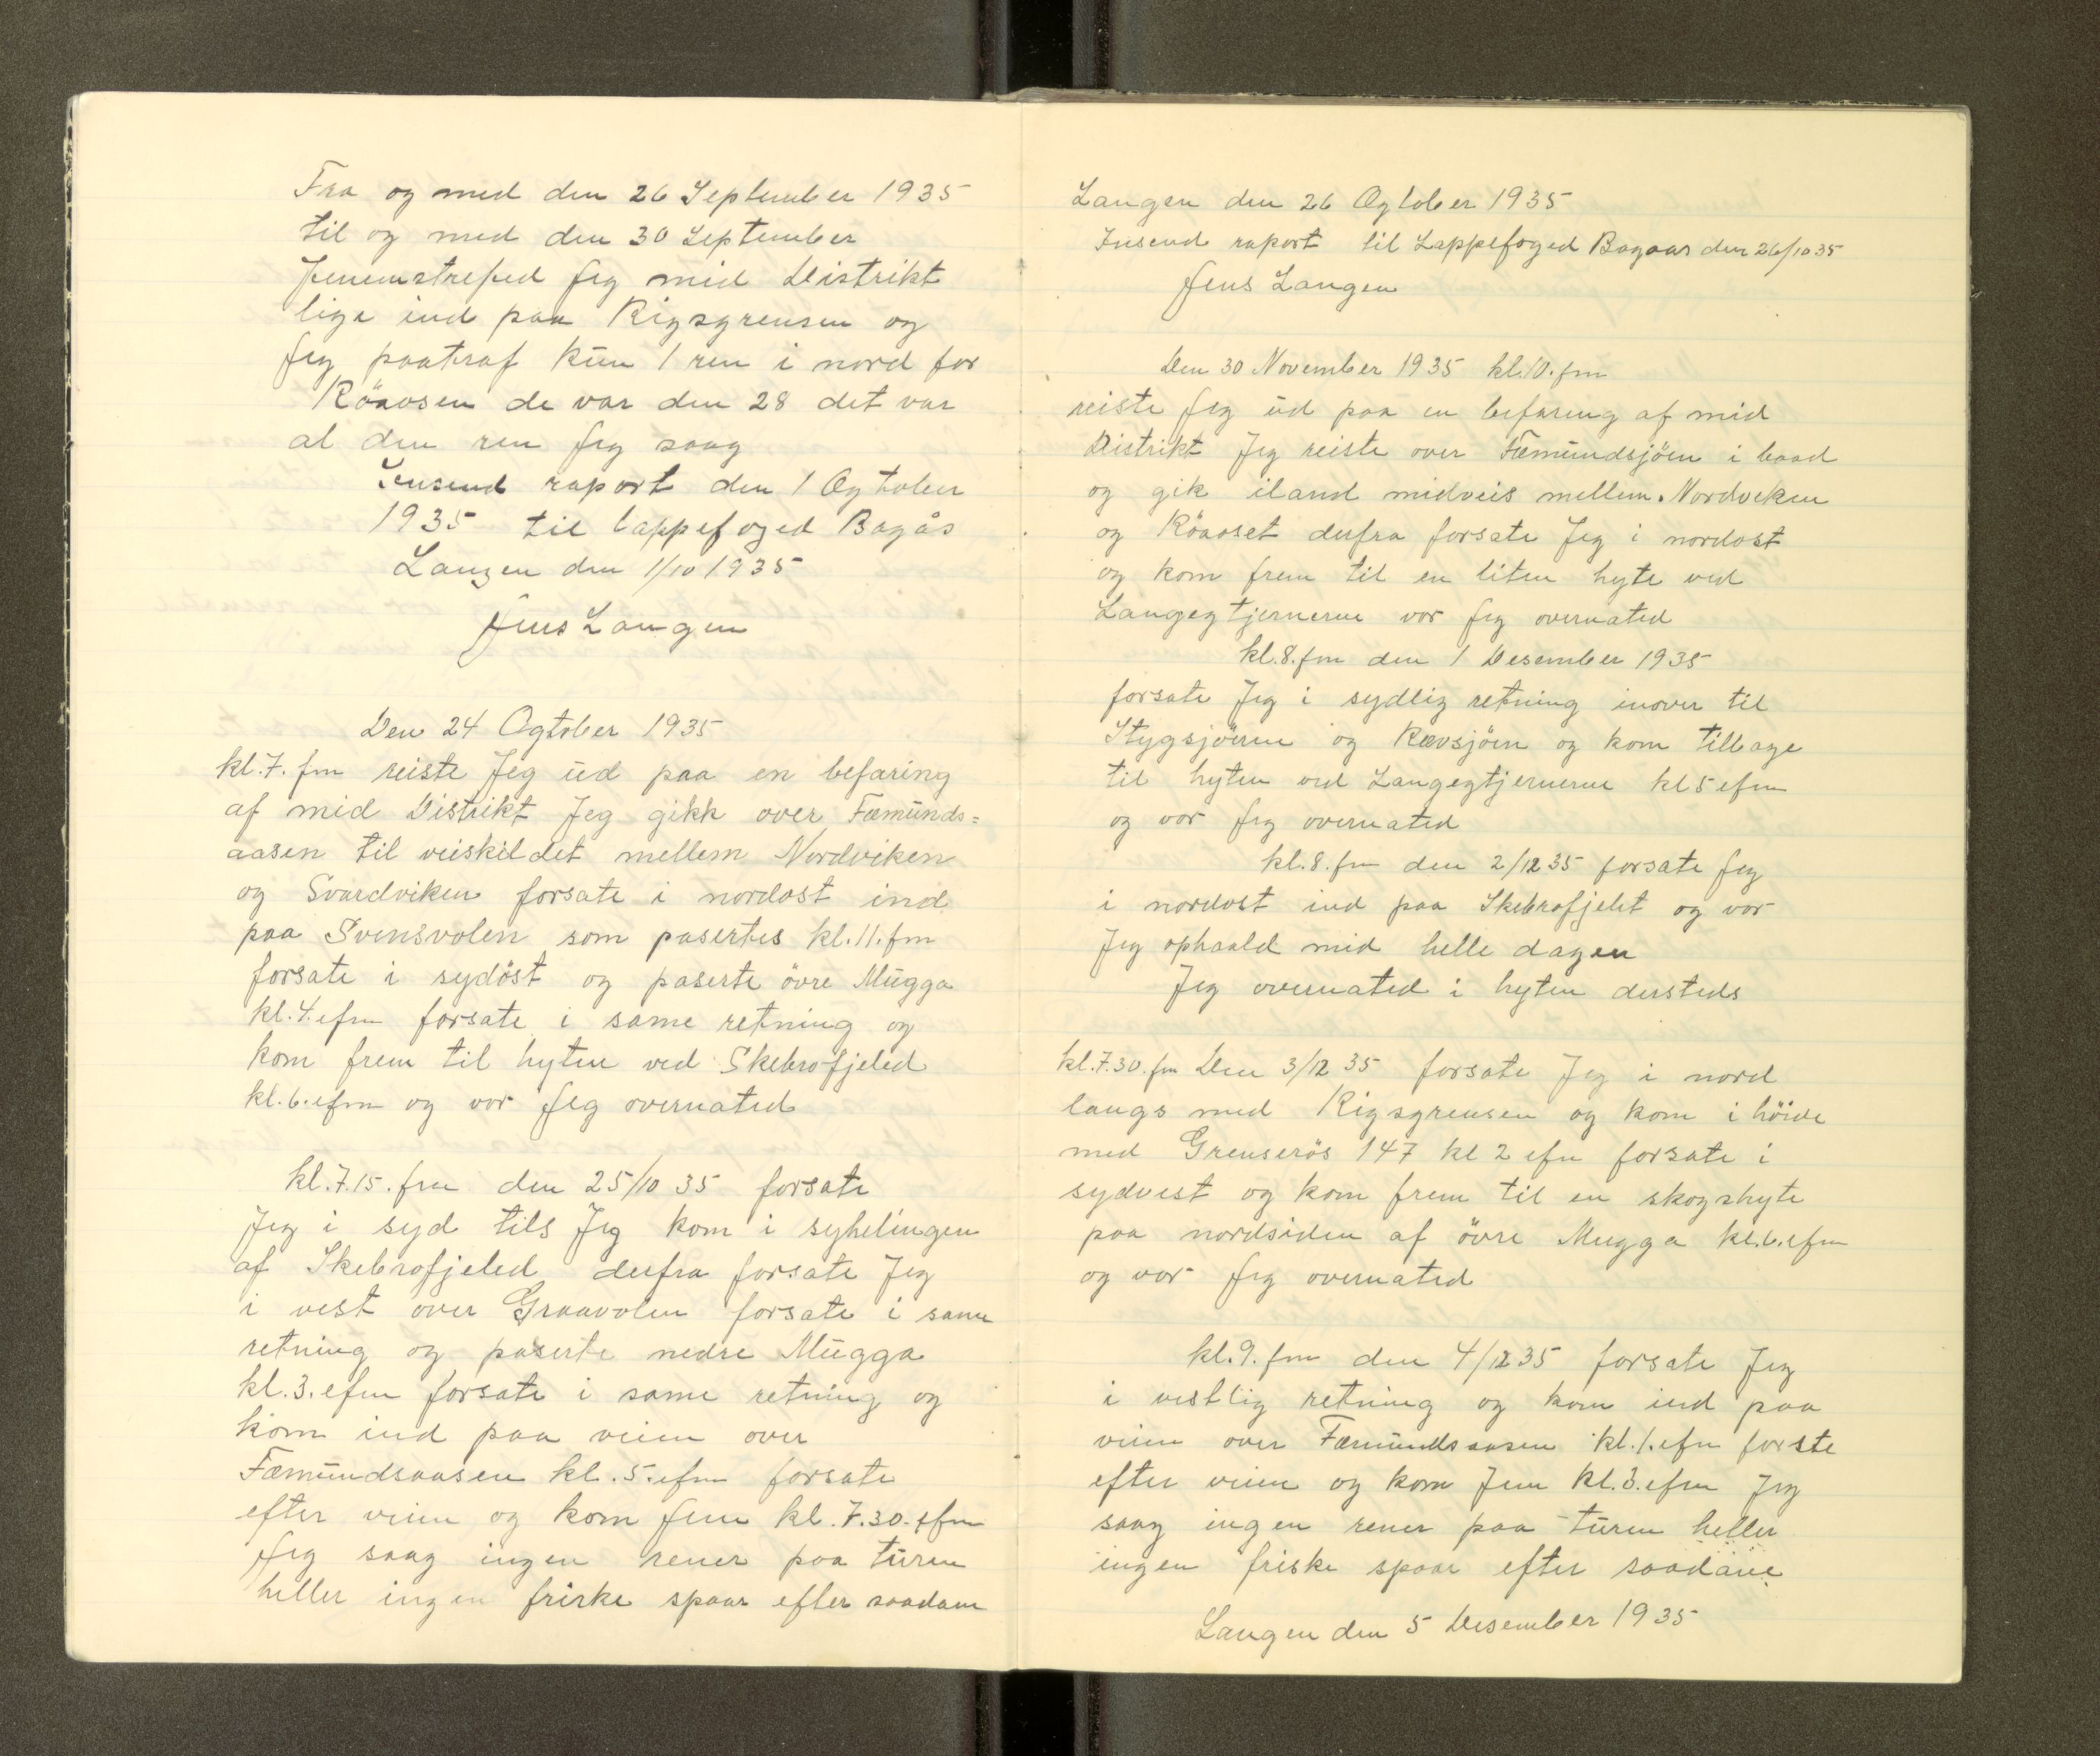 Fra og med den 26 September 1935
til og med den 30 September
Jenemstrefed Jeg mid Distrikt
lige ind paa Rigsgrensen og
Jeg paatraf kun 1 ren i nord for
Röaosen de var den 28 det var
al den ren Jeg saag
Insend raport den 1 Ogtober
1935 til lappefoged Bagås
Langen den 1/10 1935
Jens Langen
Den 24 Ogtober 1935
kl.7. fm reiste Jeg ud paa en befaring
af mid Distrikt Jeg gikk over Fæmunds=
aasen til veiskildet mellem Nordviken
og Svardviken forsate i nordost ind
paa Svensvolen som pasertes kl.11.fm
forsate i sydöst og paserte övre Mugga
kl.4.efm forsate i same retning og
kom frem til hyten ved Skebrofjeled
kl.6.efm og vor Jeg overnated
kl.7.15.fm den 25/10 35 forsate
Jeg i syd tils Jeg kom i syhelingen
af Skebrofjeled derfra forsate Jeg
i vest over Graavolen forsate i same
retning og paserte nedre Mugga
kl.3.efm forsate i same retning og
kom ind paa veien over
Fæmundsaasen kl.5.efm forsate
efter veien og kom Jem kl.7.30.efm
Jeg saag ingen rener paa turen
heller ingen friske spaar efter saadane
Langen den 26 Ogtober 1935
Insend raport til Lappefoged Bagaas den 26/10 35
Jens Langen
Den 30 November 1935 kl.10.fm
reiste Jeg ud paa en befaring af mid
Distrikt Jeg reiste over Fæmundsjöen i baad
og gik iland midveis mellem Nordviken
og Röaoset derfra forsate Jeg i nordost
og kom frem til en liten hyte ved
Langegtjernerne vor Jeg overnated
kl.8.fm den 1 Desember 1935
forsate Jeg i sydlig retning inover til
Stygsjöerne og Rævsjöen og kom tilbage
til hyten ved Langegtjernerne kl 5 efm
og vor Jeg overnated
kl.8.fm den 2/12 35 forsate Jeg
i nordost ind paa Skebrofjelet og vor
Jeg ophaald mid helle dagen
Jeg overnated i hyten dersteds
kl.7.30.fm Den 3/12 35 forsate Jeg i nord
langs med Rigsgrensen og kom i höide
med Grenserös 147 kl 2 efm forsate i
sydvest og kom frem til en skogshyte
paa nordsiden af övre Mugga kl.6.efm
og vor Jeg overnated
kl.9.fm den 4/12 35 forsate Jeg
i vestlig retning og kom ind paa
veien over Fæmundsaasen kl.1.efm forste
efter veien og kom Jem kl.3.efm Jeg
saag ingen rener paa turen heller
ingen friske spaar efter saadane
Langen den 5 Desember 1935